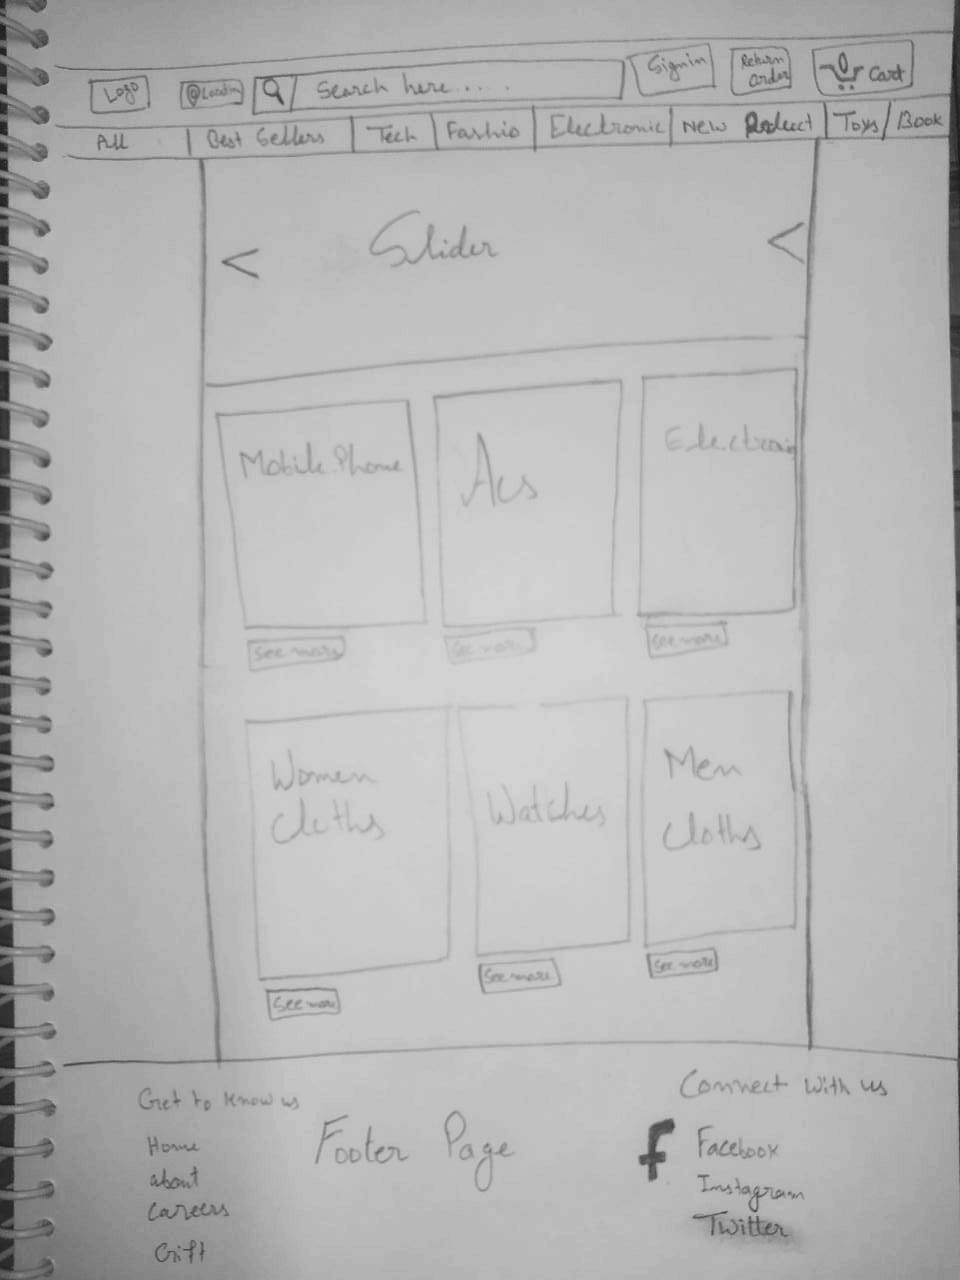 Logo Location Search here..... Signin Return order 0 Cart
All Best Sellers Tech Fashio Electronic New Product Toys/Book
< Slider <
Mobile Phone Acs Electronic
See more See more See more
Women Cloths Watches Men Cloths
See more See more See more
Get to Know us
Home
about
Careers
Gift
Footer Page
Connect with us
f Facebook
Instagram
Twitter